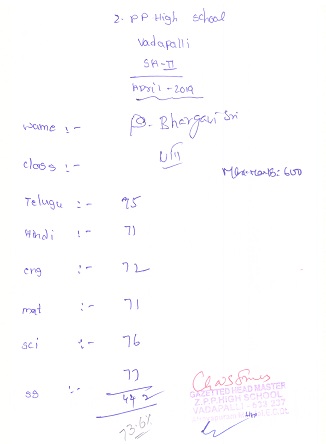 Z. P.P High school
Vadapalli
SA-II
April - 2019
Name :- P. Bhargavi Sri
class :- VII
Max.marks: 600
Telugu :- 75
Hindi :- 71
eng :- 72
mat :- 71
sci :- 76
ss :- 77
442
73.6%
GAZETTED HEAD MASTER
Z.P.P.HIGH SCHOOL
VADAPALLI